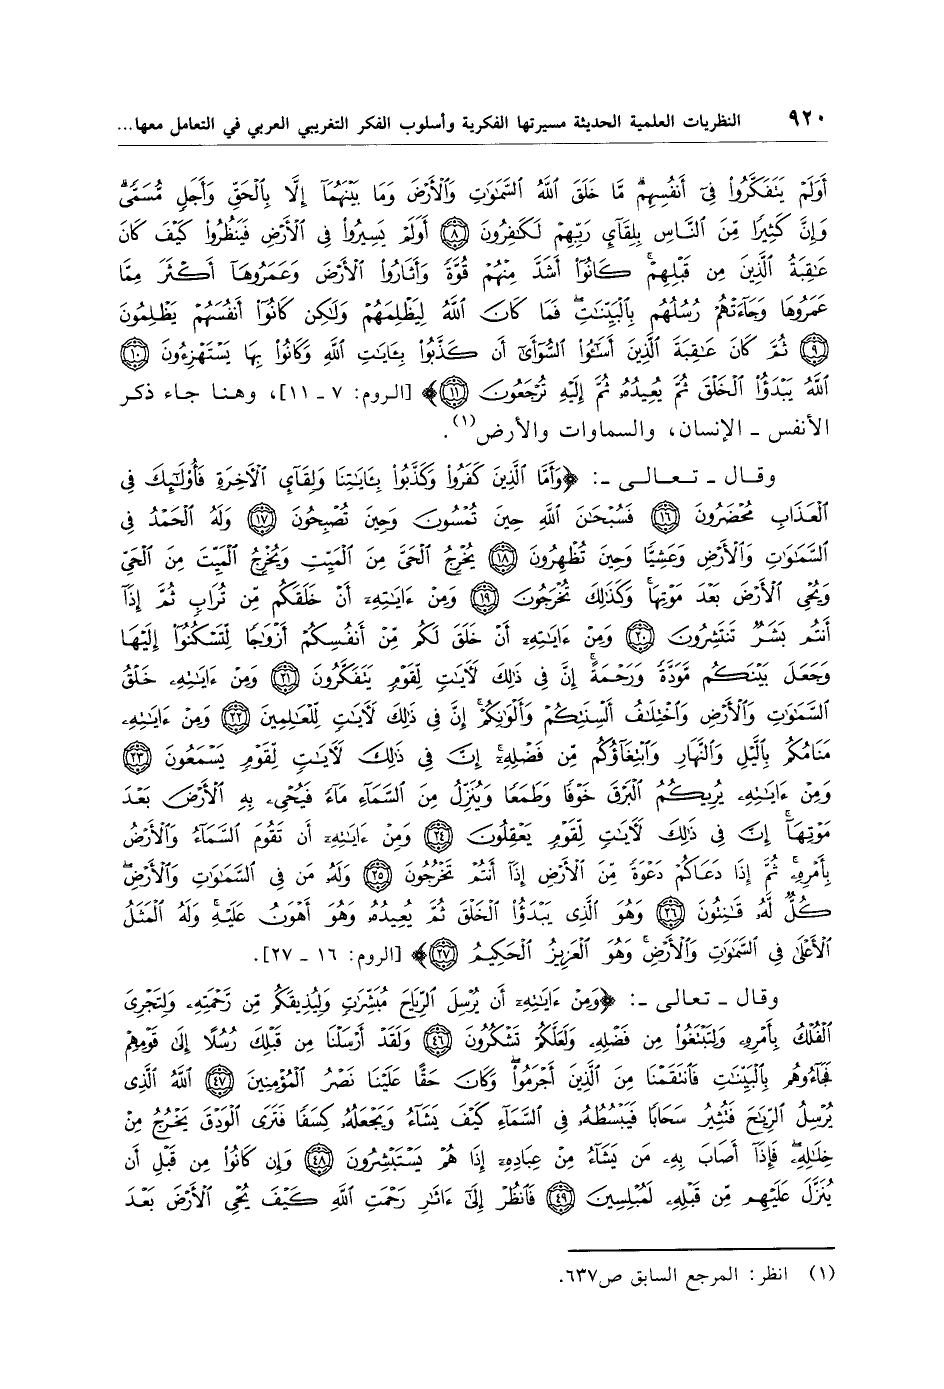 ٩٢٠ النظريات العلمية الحديثة مسيرتها الفكرية وأسلوب الفكر التغريبي العربي في التعامل معها...
أَوَلَمْ يَتَفَكَّرُوا۟ فِىٓ أَنفُسِهِم ۗ مَّا خَلَقَ ٱللَّهُ ٱلسَّمَٰوَٰتِ وَٱلْأَرْضَ وَمَا بَيْنَهُمَآ إِلَّا بِٱلْحَقِّ وَأَجَلٍ مُّسَمًّى ۗ
وَإِنَّ كَثِيرًا مِّنَ ٱلنَّاسِ بِلِقَآئِ رَبِّهِمْ لَكَٰفِرُونَ ﴿٨﴾ أَوَلَمْ يَسِيرُوا۟ فِى ٱلْأَرْضِ فَيَنظُرُوا۟ كَيْفَ كَانَ
عَٰقِبَةُ ٱلَّذِينَ مِن قَبْلِهِمْ ۚ كَانُوٓا۟ أَشَدَّ مِنْهُمْ قُوَّةً وَأَثَارُوا۟ ٱلْأَرْضَ وَعَمَرُوهَآ أَكْثَرَ مِمَّا
عَمَرُوهَا وَجَآءَتْهُمْ رُسُلُهُم بِٱلْبَيِّنَٰتِ ۖ فَمَا كَانَ ٱللَّهُ لِيَظْلِمَهُمْ وَلَٰكِن كَانُوٓا۟ أَنفُسَهُمْ يَظْلِمُونَ
﴿٩﴾ ثُمَّ كَانَ عَٰقِبَةَ ٱلَّذِينَ أَسَٰٓـُٔوا۟ ٱلسُّوٓأَىٰٓ أَن كَذَّبُوا۟ بِـَٔايَٰتِ ٱللَّهِ وَكَانُوا۟ بِهَا يَسْتَهْزِءُونَ ﴿١٠﴾
ٱللَّهُ يَبْدَؤُا۟ ٱلْخَلْقَ ثُمَّ يُعِيدُهُۥ ثُمَّ إِلَيْهِ تُرْجَعُونَ ﴿١١﴾﴾ [الروم: ٧ ـ ١١]، وهنا جاء ذكر
الأنفس ـ الإنسان، والسماوات والأرض(١).
وقال ـ تعالى ـ: ﴿وَأَمَّا ٱلَّذِينَ كَفَرُوا۟ وَكَذَّبُوا۟ بِـَٔايَٰتِنَا وَلِقَآئِ ٱلْـَٔاخِرَةِ فَأُو۟لَٰٓئِكَ فِى
ٱلْعَذَابِ مُحْضَرُونَ ﴿١٦﴾ فَسُبْحَٰنَ ٱللَّهِ حِينَ تُمْسُونَ وَحِينَ تُصْبِحُونَ ﴿١٧﴾ وَلَهُ ٱلْحَمْدُ فِى
ٱلسَّمَٰوَٰتِ وَٱلْأَرْضِ وَعَشِيًّا وَحِينَ تُظْهِرُونَ ﴿١٨﴾ يُخْرِجُ ٱلْحَىَّ مِنَ ٱلْمَيِّتِ وَيُخْرِجُ ٱلْمَيِّتَ مِنَ ٱلْحَىِّ
وَيُحْىِ ٱلْأَرْضَ بَعْدَ مَوْتِهَا ۚ وَكَذَٰلِكَ تُخْرَجُونَ ﴿١٩﴾ وَمِنْ ءَايَٰتِهِۦٓ أَنْ خَلَقَكُم مِّن تُرَابٍ ثُمَّ إِذَآ
أَنتُم بَشَرٌ تَنتَشِرُونَ ﴿٢٠﴾ وَمِنْ ءَايَٰتِهِۦٓ أَنْ خَلَقَ لَكُم مِّنْ أَنفُسِكُمْ أَزْوَٰجًا لِّتَسْكُنُوٓا۟ إِلَيْهَا
وَجَعَلَ بَيْنَكُم مَّوَدَّةً وَرَحْمَةً ۚ إِنَّ فِى ذَٰلِكَ لَـَٔايَٰتٍ لِّقَوْمٍ يَتَفَكَّرُونَ ﴿٢١﴾ وَمِنْ ءَايَٰتِهِۦ خَلْقُ
ٱلسَّمَٰوَٰتِ وَٱلْأَرْضِ وَٱخْتِلَٰفُ أَلْسِنَتِكُمْ وَأَلْوَٰنِكُمْ ۚ إِنَّ فِى ذَٰلِكَ لَـَٔايَٰتٍ لِّلْعَٰلِمِينَ ﴿٢٢﴾ وَمِنْ ءَايَٰتِهِۦ
مَنَامُكُم بِٱلَّيْلِ وَٱلنَّهَارِ وَٱبْتِغَآؤُكُم مِّن فَضْلِهِۦٓ ۚ إِنَّ فِى ذَٰلِكَ لَـَٔايَٰتٍ لِّقَوْمٍ يَسْمَعُونَ ﴿٢٣﴾
وَمِنْ ءَايَٰتِهِۦ يُرِيكُمُ ٱلْبَرْقَ خَوْفًا وَطَمَعًا وَيُنَزِّلُ مِنَ ٱلسَّمَآءِ مَآءً فَيُحْىِۦ بِهِ ٱلْأَرْضَ بَعْدَ
مَوْتِهَآ ۚ إِنَّ فِى ذَٰلِكَ لَـَٔايَٰتٍ لِّقَوْمٍ يَعْقِلُونَ ﴿٢٤﴾ وَمِنْ ءَايَٰتِهِۦٓ أَن تَقُومَ ٱلسَّمَآءُ وَٱلْأَرْضُ
بِأَمْرِهِۦ ۚ ثُمَّ إِذَا دَعَاكُمْ دَعْوَةً مِّنَ ٱلْأَرْضِ إِذَآ أَنتُمْ تَخْرُجُونَ ﴿٢٥﴾ وَلَهُۥ مَن فِى ٱلسَّمَٰوَٰتِ وَٱلْأَرْضِ ۖ
كُلٌّ لَّهُۥ قَٰنِتُونَ ﴿٢٦﴾ وَهُوَ ٱلَّذِى يَبْدَؤُا۟ ٱلْخَلْقَ ثُمَّ يُعِيدُهُۥ وَهُوَ أَهْوَنُ عَلَيْهِ ۚ وَلَهُ ٱلْمَثَلُ
ٱلْأَعْلَىٰ فِى ٱلسَّمَٰوَٰتِ وَٱلْأَرْضِ ۚ وَهُوَ ٱلْعَزِيزُ ٱلْحَكِيمُ ﴿٢٧﴾﴾ [الروم: ١٦ ـ ٢٧].
وقال ـ تعالى ـ: ﴿وَمِنْ ءَايَٰتِهِۦٓ أَن يُرْسِلَ ٱلرِّيَاحَ مُبَشِّرَٰتٍ وَلِيُذِيقَكُم مِّن رَّحْمَتِهِۦ وَلِتَجْرِىَ
ٱلْفُلْكُ بِأَمْرِهِۦ وَلِتَبْتَغُوا۟ مِن فَضْلِهِۦ وَلَعَلَّكُمْ تَشْكُرُونَ ﴿٤٦﴾ وَلَقَدْ أَرْسَلْنَا مِن قَبْلِكَ رُسُلًا إِلَىٰ قَوْمِهِمْ
فَجَآءُوهُم بِٱلْبَيِّنَٰتِ فَٱنتَقَمْنَا مِنَ ٱلَّذِينَ أَجْرَمُوا۟ ۖ وَكَانَ حَقًّا عَلَيْنَا نَصْرُ ٱلْمُؤْمِنِينَ ﴿٤٧﴾ ٱللَّهُ ٱلَّذِى
يُرْسِلُ ٱلرِّيَٰحَ فَتُثِيرُ سَحَابًا فَيَبْسُطُهُۥ فِى ٱلسَّمَآءِ كَيْفَ يَشَآءُ وَيَجْعَلُهُۥ كِسَفًا فَتَرَى ٱلْوَدْقَ يَخْرُجُ مِنْ
خِلَٰلِهِۦ ۖ فَإِذَآ أَصَابَ بِهِۦ مَن يَشَآءُ مِنْ عِبَادِهِۦٓ إِذَا هُمْ يَسْتَبْشِرُونَ ﴿٤٨﴾ وَإِن كَانُوا۟ مِن قَبْلِ أَن
يُنَزَّلَ عَلَيْهِم مِّن قَبْلِهِۦ لَمُبْلِسِينَ ﴿٤٩﴾ فَٱنظُرْ إِلَىٰٓ ءَاثَٰرِ رَحْمَتِ ٱللَّهِ كَيْفَ يُحْىِ ٱلْأَرْضَ بَعْدَ
(١) انظر: المرجع السابق ص٦٣٧.